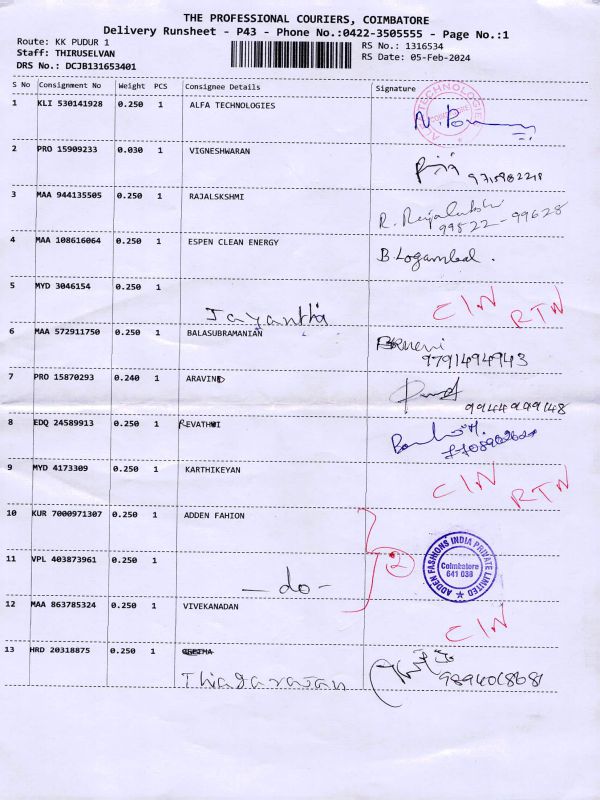 THE PROFESSIONAL COURIERS, COIMBATORE
Delivery Runsheet - P43 - Phone No.:0422-3505555 - Page No.:1
Route: KK PUDUR 1
Staff: THIRUSELVAN
DRS No.: DCJB131653401
RS No.: 1316534
RS Date: 05-Feb-2024
S No Consignment No Weight PCS Consignee Details Signature
1 KLI 530141928 0.250 1 ALFA TECHNOLOGIES
2 PRO 15909233 0.030 1 VIGNESHWARAN
3 MAA 944135505 0.250 1 RAJALSKSHMI R. Rajalakshmi
99522-99628
4 MAA 108616064 0.250 1 ESPEN CLEAN ENERGY B.Logambal.
5 MYD 3046154 0.250 1 Jayanthi CIN RTN
6 MAA 572911750 0.250 1 BALASUBRAMANIAN
9791494943
7 PRO 15870293 0.240 1 ARAVIND
9944999148
8 EDQ 24589913 0.250 1 REVATHI
9 MYD 4173309 0.250 1 KARTHIKEYAN CIN RTN
10 KUR 7000971307 0.250 1 ADDEN FAHION
11 VPL 403873961 0.250 1 -do- 2
ADDEN FASHIONS INDIA PRIVATE LIMITED
Coimbatore
641 038
12 MAA 863785324 0.250 1 VIVEKANADAN CIN
13 HRD 20318875 0.250 1
Thiagarajan